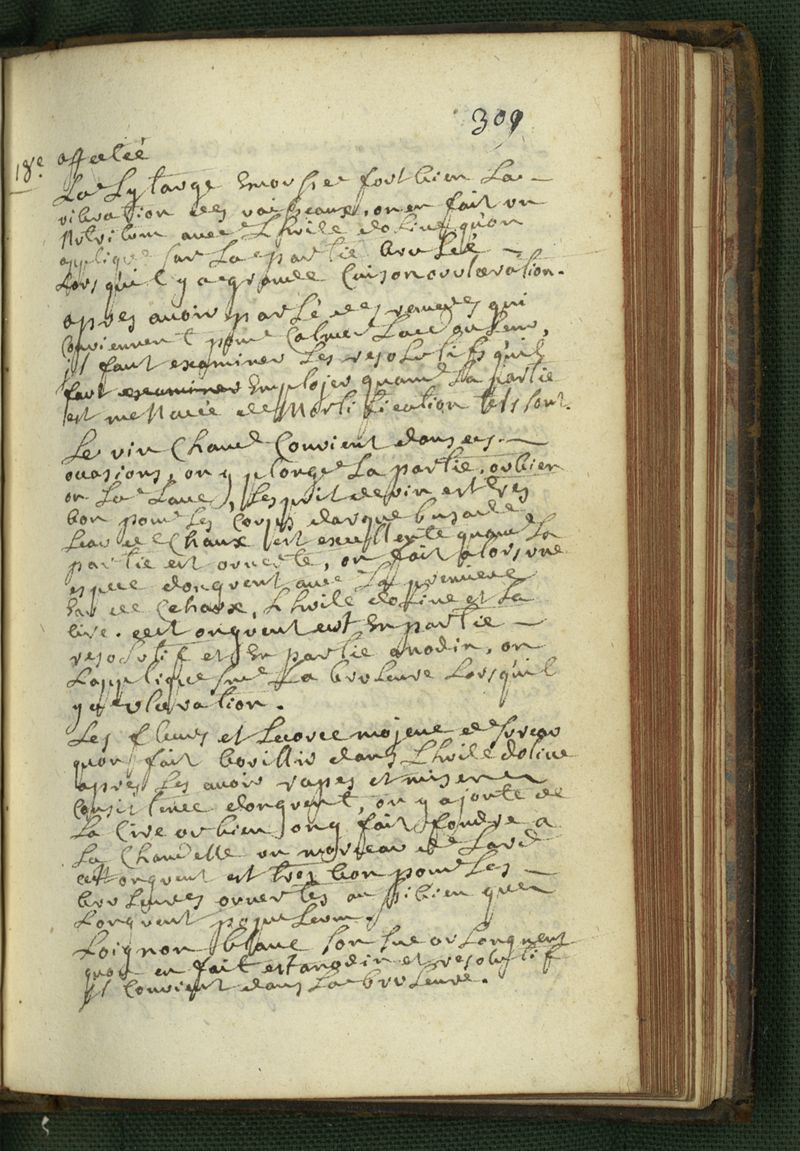 309
18e affecteé
La Lytarge Emousse fort bien La
vibration des vaisseaux, on en fait un
Nutritum avec L huile doLive qu'on
applique sur La partie bruLéé
Lors qu'il y a grande Cuison ou ulceration.
apres avoir parLé des remedes qui
Conviennent pour Calmer La douLeur,
il faut examiner Les resoLutifs qu'il
faut examiner Employer quand La partie
est meNacée de Mortification tels sont.
Le vin Chaud Convient dans ces
occasions, on y plonge La partie, ou bien
on La Lave, Lesprit de vin est tres
bon pour Les Coups darquebusade
Leau de Chaux est exceLLente quand La
partie est ouverte, on fait alors une
espece donguent avec La premiere
Eau de Chaux, L huile doLive et La
Cire. cest onguent est En partie
resoLutif et En partie anodin, on
Lapplique sur La bruLeure Lorsquil
y a ulceration.
Les fleurs et Lecorce mojene de sureau
quon fait bouillir dans L huile dolive
apres Les avoir rapes et mis en
Consistence donguent, on y ajoute de
La Cire ou bien on y fait fondre a
La Chandelle un morceau de Lard
cest onguent est tres bon pour Les
bruLeures ouvertes aussi bien que
Longuent popuLeum.
Loignon blanc son suc ou Longuent
quon en fait est anodin et resolutif
il Convient dans La bruLeure.